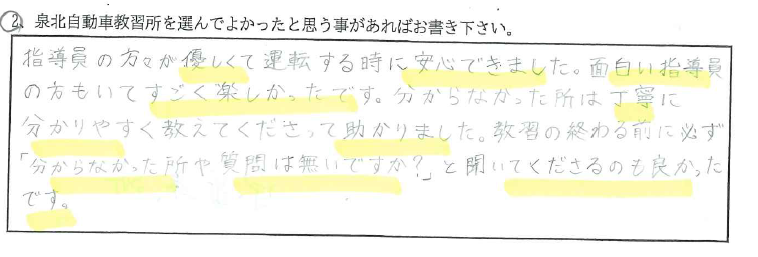 2、泉北自動車教習所を選んでよかったと思う事があればお書き下さい。
指導員の方々が優しくて運転する時に安心できました。面白い指導員
の方もいてすごく楽しかったです。分からなかった所は丁寧に
分かりやすく教えてくださって助かりました。教習の終わる前に必ず
「分からなかった所や質問は無いですか?」と聞いてくださるのも良かった
です。